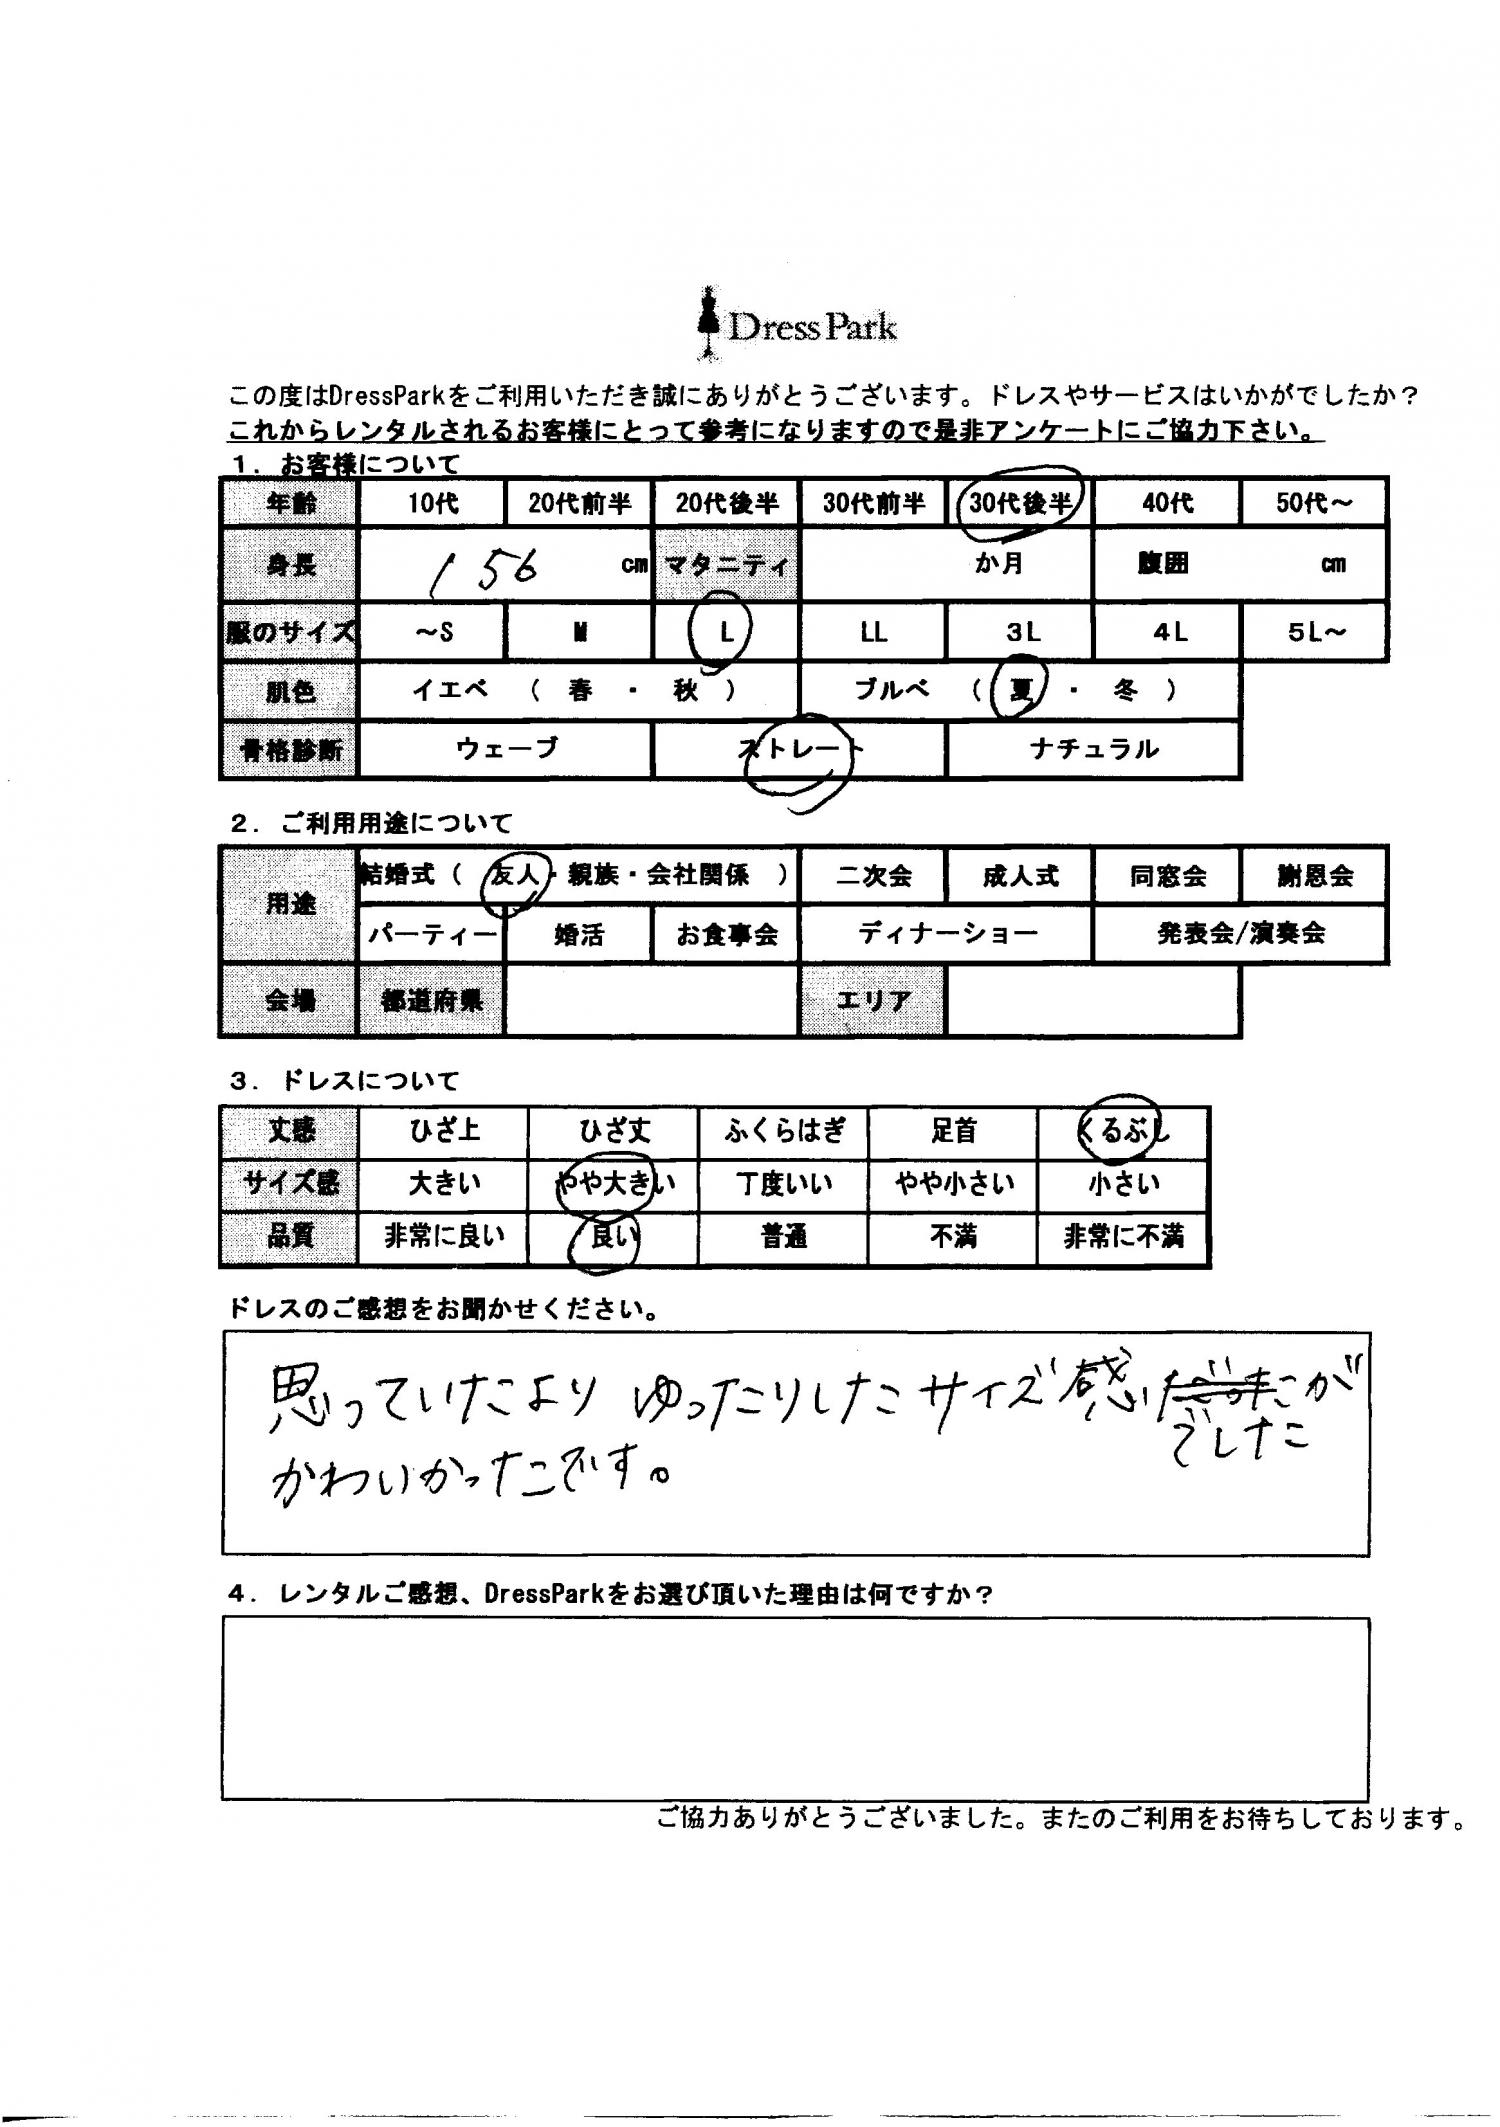 Dress Park
この度はDressParkをご利用いただき誠にありがとうございます。ドレスやサービスはいかがでしたか？
これからレンタルされるお客様にとって参考になりますので是非アンケートにご協力下さい。
１．お客様について
年齢 10代 20代前半 20代後半 30代前半 30代後半 40代 50代～
身長 156 cm マタニティ か月 腹囲 cm
服のサイズ ～S M L LL 3L 4L 5L～
肌色 イエベ （ 春 ・ 秋 ） ブルベ （ 夏 ・ 冬 ）
骨格診断 ウェーブ ストレート ナチュラル
２．ご利用用途について
用途 結婚式（ 友人・親族・会社関係 ） 二次会 成人式 同窓会 謝恩会
パーティー 婚活 お食事会 ディナーショー 発表会/演奏会
会場 都道府県 エリア
３．ドレスについて
丈感 ひざ上 ひざ丈 ふくらはぎ 足首 くるぶし
サイズ感 大きい やや大きい 丁度いい やや小さい 小さい
品質 非常に良い 良い 普通 不満 非常に不満
ドレスのご感想をお聞かせください。
思っていたより ゆったりしたサイズ感 が
でした
かわいかったです。
４．レンタルご感想、DressParkをお選び頂いた理由は何ですか？
ご協力ありがとうございました。またのご利用をお待ちしております。